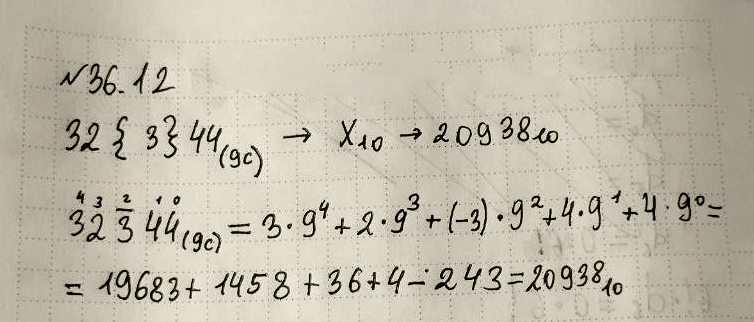 №36.12
32{3}44(9c) → X10 → 2093810
4 3 2 1 0
323̅44(9c) = 3·9⁴+2·9³+(-3)·9²+4·9¹+4·9⁰=
= 19683+1458+36+4-243=2093810